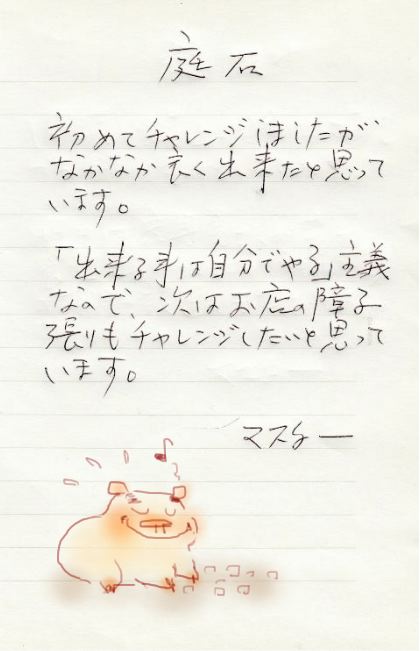 庭石
初めてチャレンジしましたが
なかなか良く出来たと思って
います。
「出来る事は自分でやる」主義
なので、次はお店の障子
張りもチャレンジしたいと思って
います。
マスター